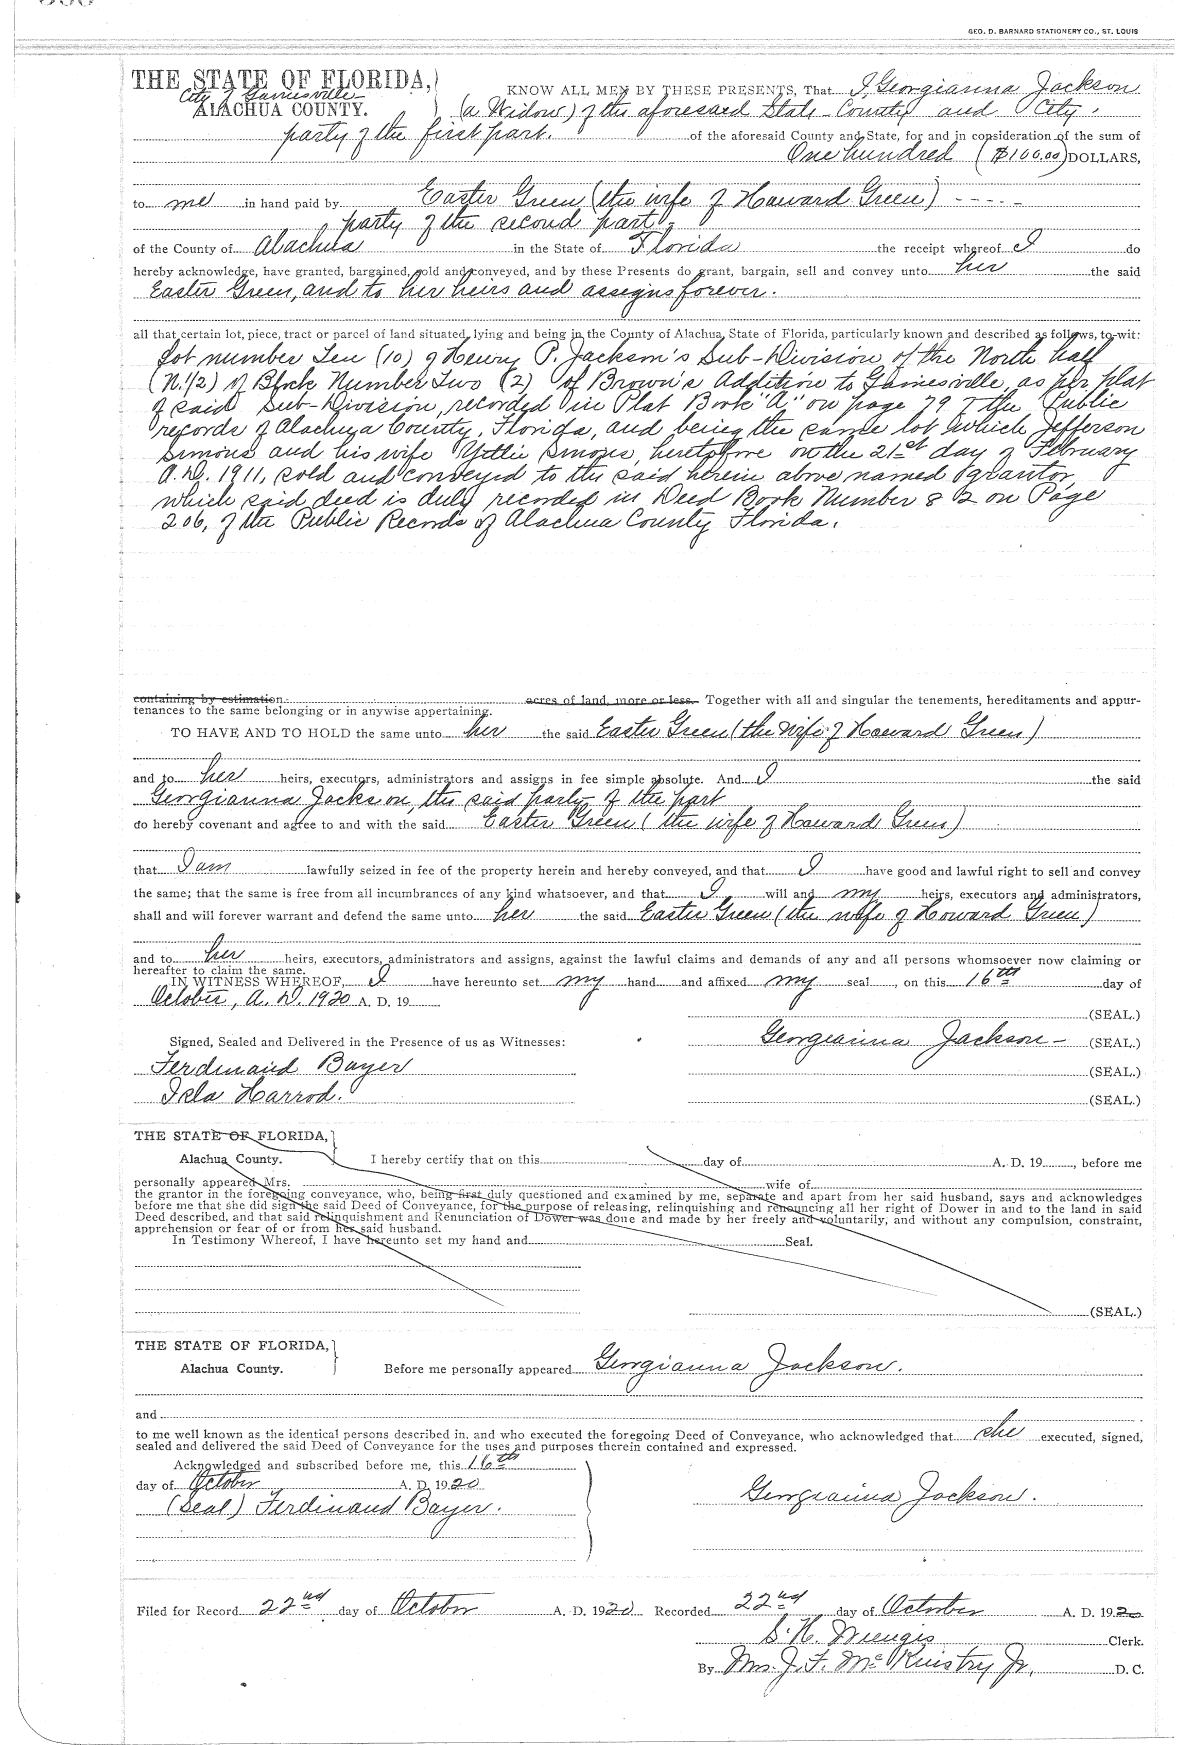 GEO. D. BARNARD STATIONERY CO., ST. LOUIS
THE STATE OF FLORIDA,
City of Gainesville
ALACHUA COUNTY.
KNOW ALL MEN BY THESE PRESENTS, That I, Georgianna Jackson
(a Widow) of the aforesaid State - County and City.
party of the first part. of the aforesaid County and State, for and in consideration of the sum of
One hundred ($100.00) DOLLARS,
to me in hand paid by Easter Green (the wife of Howard Green) - - - - -
party of the second part,
of the County of Alachua in the State of Florida the receipt whereof I do
hereby acknowledge, have granted, bargained, sold and conveyed, and by these Presents do grant, bargain, sell and convey unto her the said
Easter Green, and to her heirs and assigns forever.
all that certain lot, piece, tract or parcel of land situated, lying and being in the County of Alachua, State of Florida, particularly known and described as follows, to-wit:
Lot number Ten (10) of Henry P. Jackson's Sub-Division of the North half
(N.1/2) of Block Number Two (2) of Brown's Addition to Gainesville, as per plat
of said Sub-Division, recorded in Plat Book "A" on page 79 of the Public
records of Alachua County, Florida, and being the same lot which Jefferson
Simons and his wife Simons, heretofore on the 21st day of February
A.D. 1911, sold and conveyed to the said herein above named grantor,
which said deed is duly recorded in Deed Book Number 82 on Page
206, of the Public Records of Alachua County Florida.
containing by estimation acres of land, more or less. Together with all and singular the tenements, hereditaments and appur-
tenances to the same belonging or in anywise appertaining.
TO HAVE AND TO HOLD the same unto her the said Easter Green (the wife of Howard Green)
and to her heirs, executors, administrators and assigns in fee simple absolute. And I the said
Georgianna Jackson, the said party of the part
do hereby covenant and agree to and with the said Easter Green (the wife of Howard Green)
that I am lawfully seized in fee of the property herein and hereby conveyed, and that I have good and lawful right to sell and convey
the same; that the same is free from all incumbrances of any kind whatsoever, and that I will and my heirs, executors and administrators,
shall and will forever warrant and defend the same unto her the said Easter Green (the wife of Howard Green)
and to her heirs, executors, administrators and assigns, against the lawful claims and demands of any and all persons whomsoever now claiming or
hereafter to claim the same.
IN WITNESS WHEREOF, I have hereunto set my hand and affixed my seal, on this 16th day of
October, A.D. 1920 A. D. 19
(SEAL.)
Signed, Sealed and Delivered in the Presence of us as Witnesses: Georgianna Jackson - (SEAL.)
Ferdinand Bayer (SEAL.)
Harrod. (SEAL.)
THE STATE OF FLORIDA,
Alachua County. I hereby certify that on this day of A. D. 19, before me
personally appeared Mrs. wife of
the grantor in the foregoing conveyance, who, being first duly questioned and examined by me, separate and apart from her said husband, says and acknowledges
before me that she did sign the said Deed of Conveyance, for the purpose of releasing, relinquishing and renouncing all her right of Dower in and to the land in said
Deed described, and that said relinquishment and Renunciation of Dower was done and made by her freely and voluntarily, and without any compulsion, constraint,
apprehension or fear of or from her said husband.
In Testimony Whereof, I have hereunto set my hand and Seal.
(SEAL.)
THE STATE OF FLORIDA,
Alachua County. Before me personally appeared Georgianna Jackson.
and
to me well known as the identical persons described in, and who executed the foregoing Deed of Conveyance, who acknowledged that she executed, signed,
sealed and delivered the said Deed of Conveyance for the uses and purposes therein contained and expressed.
Acknowledged and subscribed before me, this 16th
day of October A. D. 1920
(Seal) Ferdinand Bayer. Georgianna Jackson.
Filed for Record 22nd day of October A. D. 1920 Recorded 22nd day of October A. D. 1920
S. H. Wienges Clerk.
By Mrs. J. F. McKinstry Jr. D. C.